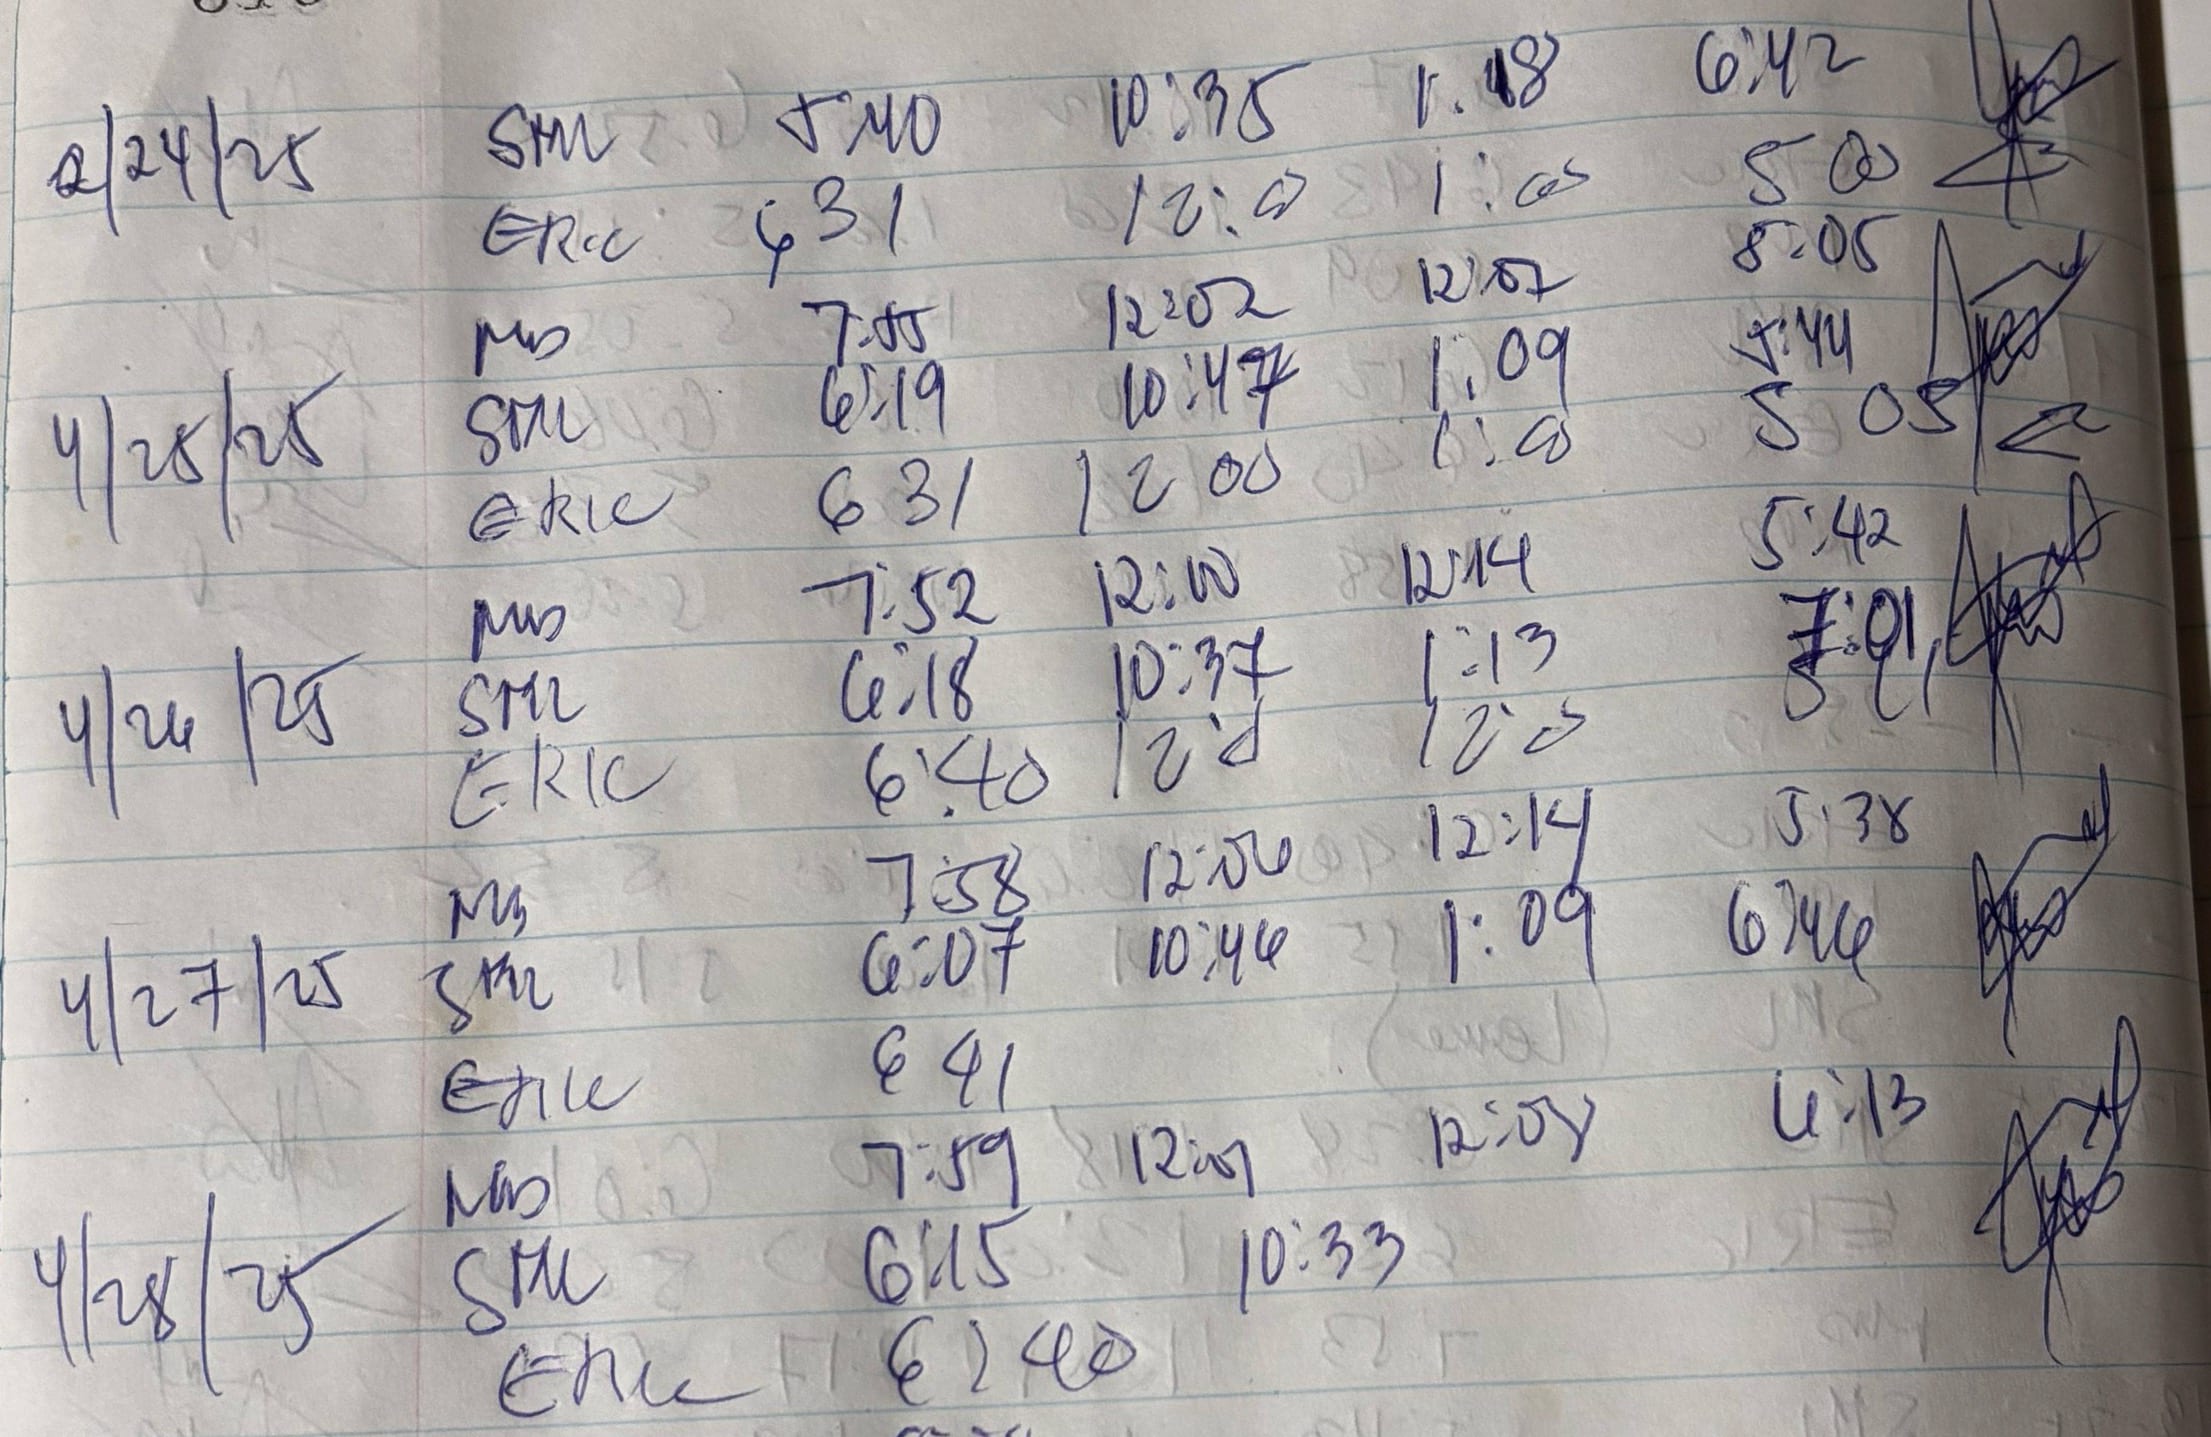 2/24/25 SML 5:40 10:35 1:18 6:42
ERIC 6 31 12:00 1:00 5 00
MB 7:55 12:02 12:07 8:05
4/25/25 SML 6:19 10:47 1:09 5:44
ERIC 6 31 12 00 1:00 5 05
MB 7:52 12:10 12:14 5:42
4/26/25 SML 6:18 10:37 1:13 7:01
ERIC 6:40 12:0 12:0
MB 7:58 12:06 12:14 5:38
4/27/25 SML 6:07 10:46 1:09 6:46
ERIC 6 41
MB 7:59 12:01 12:08 6:13
4/28/25 SML 6:15 10:33
ERIC 6:40